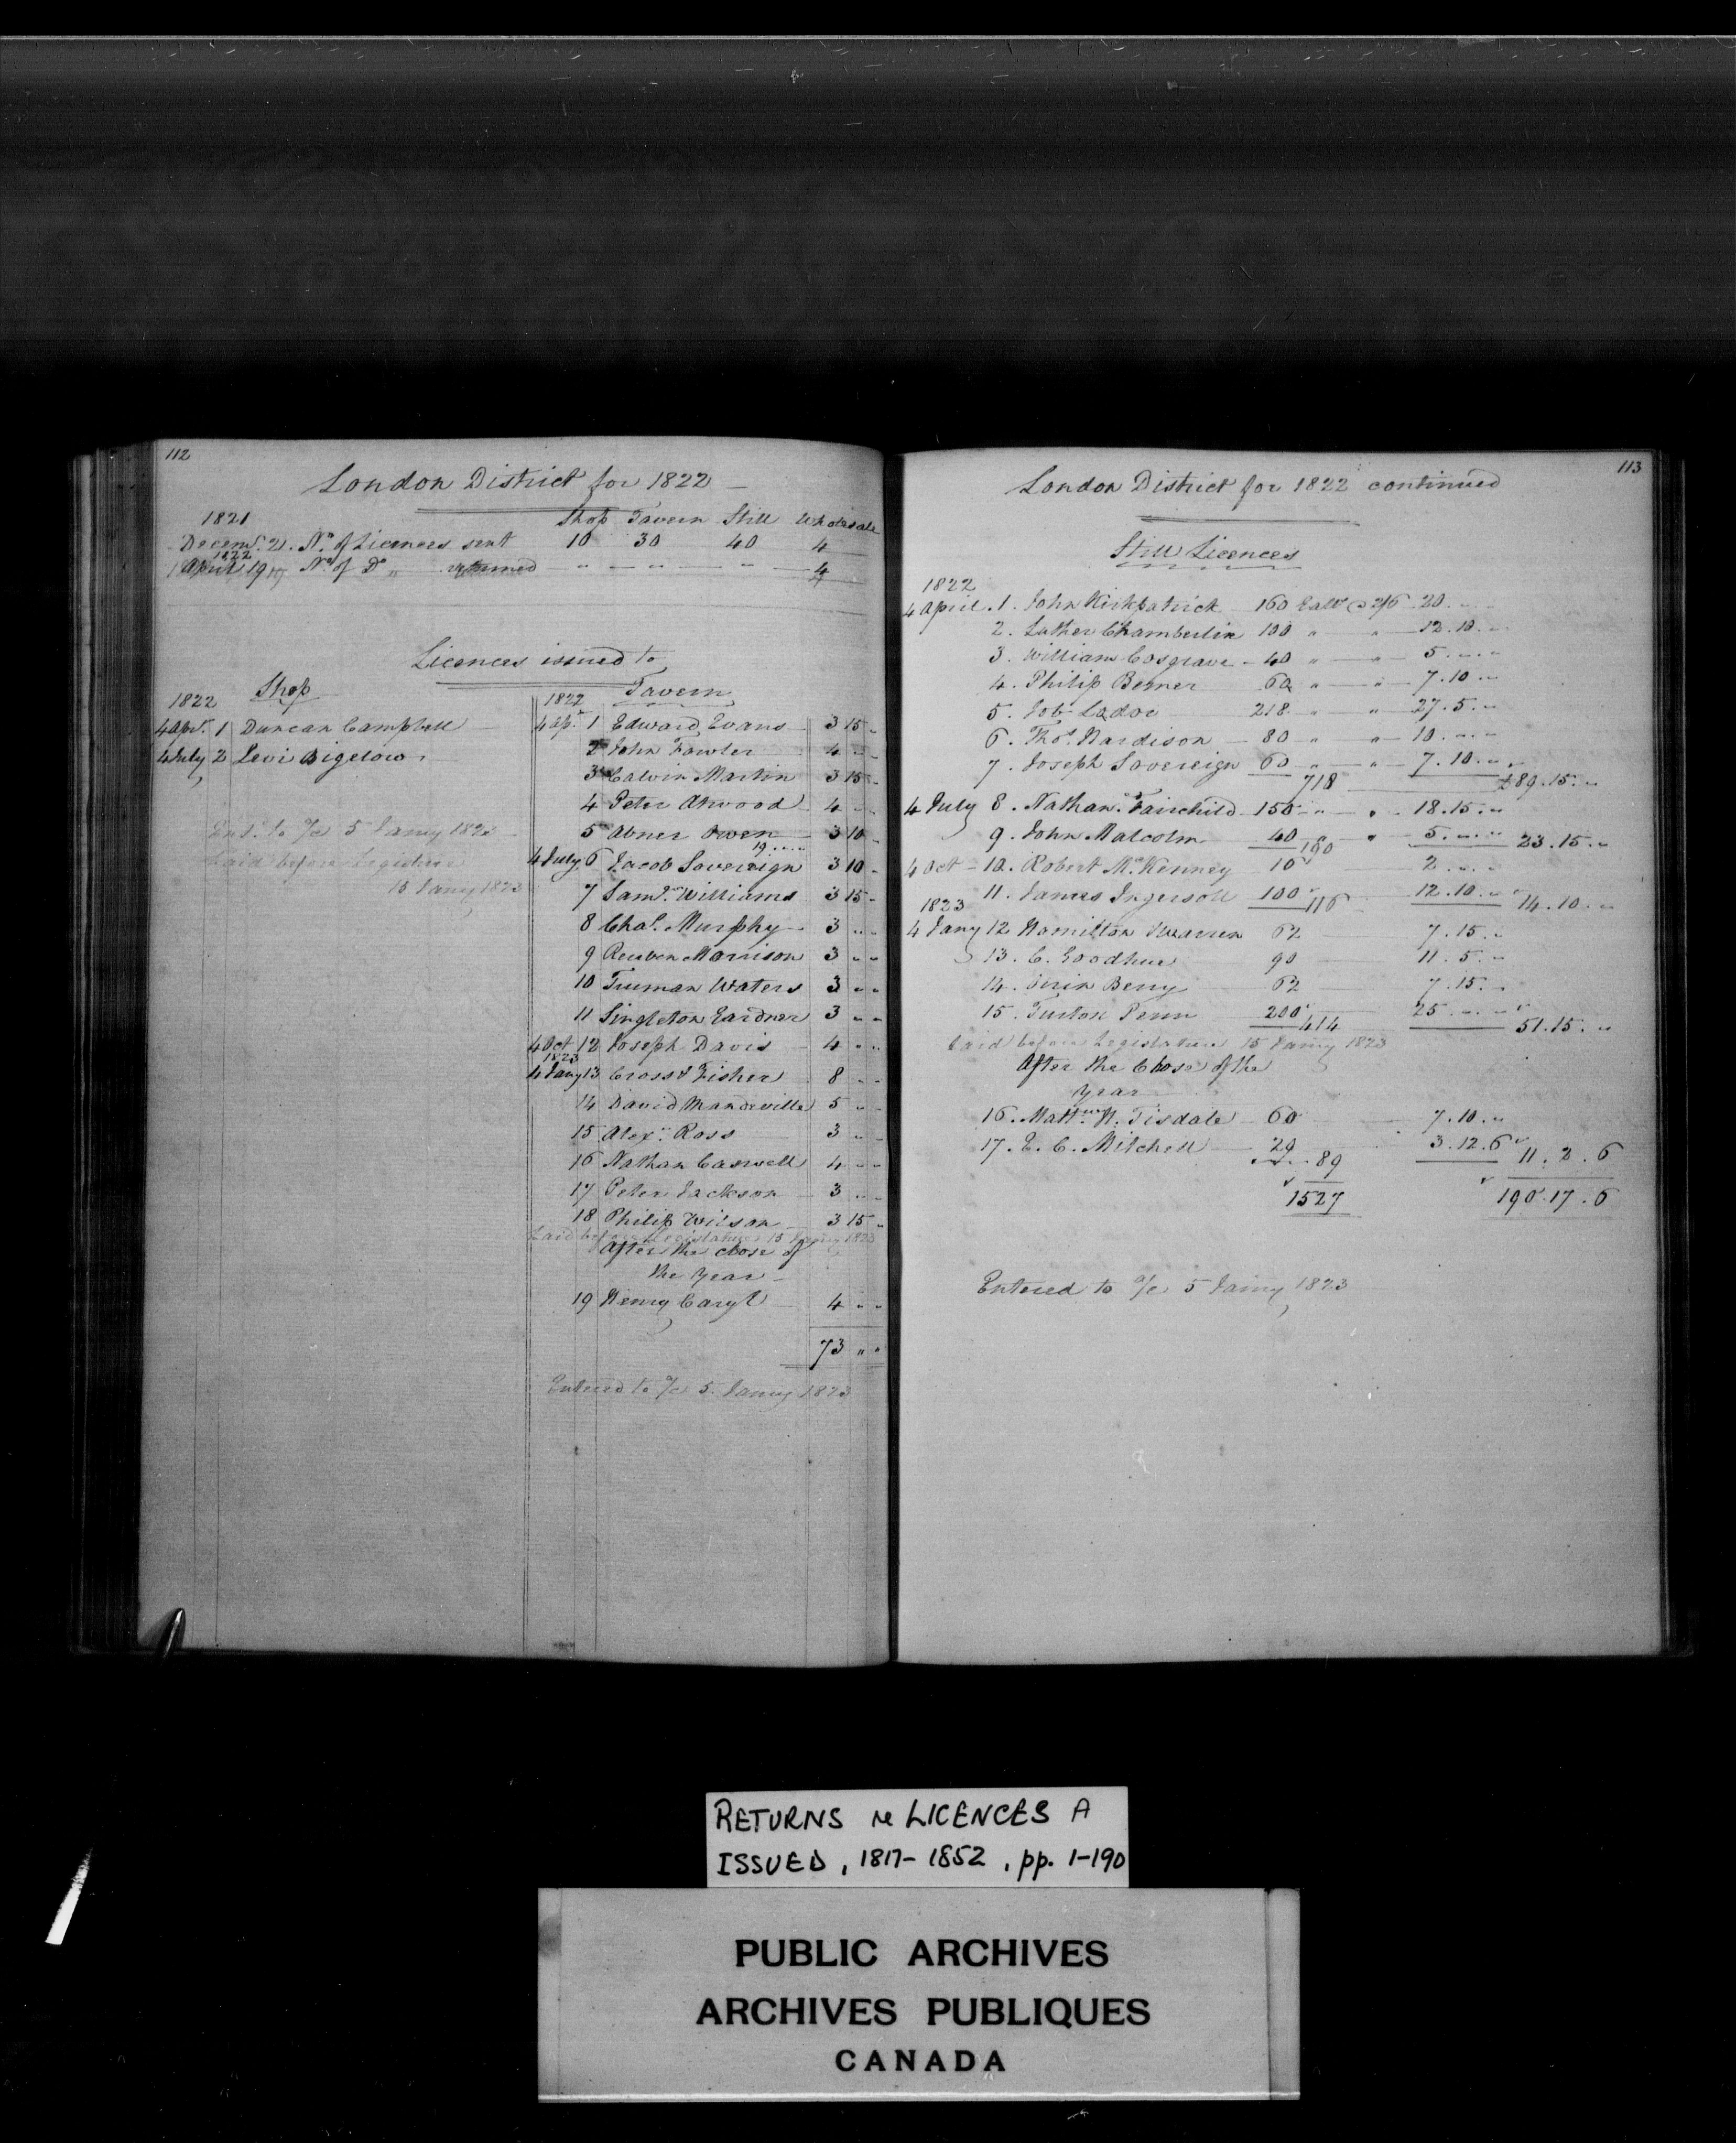 112
London District for 1822
1821 Shop Tavern Still Wholesale
Decemr. 21. No. of Licences sent 10 30 40 4
1822
April 19 No. of Do " returned " " " 4
Licences issued to
1822 Shop
4 Apr. 1 Duncan Campbell
4 July 2 Levi Bigelow
Entd. to a/c 5 Jany 1823
Laid before Legislature
15 Jany 1823
1822 Tavern
4 Ap. 1 Edward Evans 3 15 "
2 John Fowler 4 " "
3 Calvin Martin 3 15 "
4 Peter Atwood 4 " "
5 Abner Owen 3 10 "
19 " "
4 July 6 Jacob Sovereign 3 10 "
7 Saml. Williams 3 15 "
8 Chas. Murphy 3 " "
9 Reuben Morrison 3 " "
10 Truman Waters 3 " "
11 Singleton Gardner 3 " "
4 Oct 12 Joseph Davis 4 " "
1823
4 Jany 13 Cross & Fisher 8 " "
14 David Mandeville 5 " "
15 Alexr. Ross 3 " "
16 Nathan Caswell 4 " "
17 Peter Jackson 3 " "
18 Philip Wilson 3 15 "
Laid before Legislature 15 Jany 1823
After the close of
the year
19 Henry Caryl 4 " "
73 " "
Entered to a/c 5 Jany 1823
113
London District for 1822 continued
Still Licences
1822
4 April . 1 . John Kirkpatrick 160 Galls @ 2/6 20 . " "
2 . Luther Chamberlin 100 " " 12 . 10 . "
3 . William Cosgrave 40 " " 5 . " "
4 . Philip Bemer 60 " " 7 . 10 . "
5 . Job Lodor 218 " " 27 . 5 . "
6 . Thos. Hardison 80 " " 10 . " "
7 . Joseph Sovereign 60 " " 7 . 10 . "
718 £89 . 15 . "
4 July 8 . Nathanl. Fairchild 150 " " 18 . 15 . "
9 . John Malcolm 40 " " 5 . " "
190 23 . 15 . "
4 Oct 10 . Robert McKenney 16 2 . " "
11 . James Ingersoll 100 12 . 10 . "
116 14 . 10 . "
1823
4 Jany 12 Hamilton Warren 62 7 . 15 . "
13 . C. Goodhue 90 11 . 5 . "
14 . Berry 62 7 . 15 . "
15 . Penn 200 25 . " "
414 51 . 15 . "
Laid before Legislature 15 Jany 1823
After the Close of the
year
16 . Mattw. N. Tisdale 60 7 . 10 . "
17 . E. C. Mitchell 29 3 . 12 . 6
89 11 . 2 . 6
1527 190 . 17 . 6
Entered to a/c 5 Jany 1823
RETURNS re LICENCES A
ISSUED, 1817-1852, pp. 1-190
PUBLIC ARCHIVES
ARCHIVES PUBLIQUES
CANADA